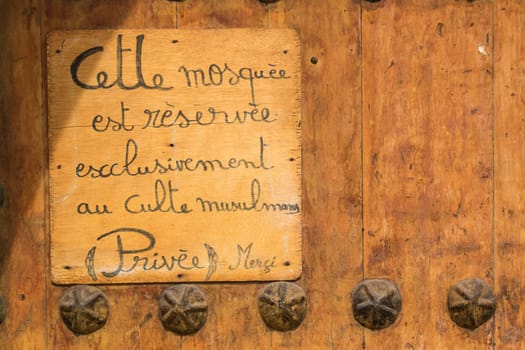 Cette mosquée
est rèservée
exclusivement
au culte musulmans
(Privée) Merçi